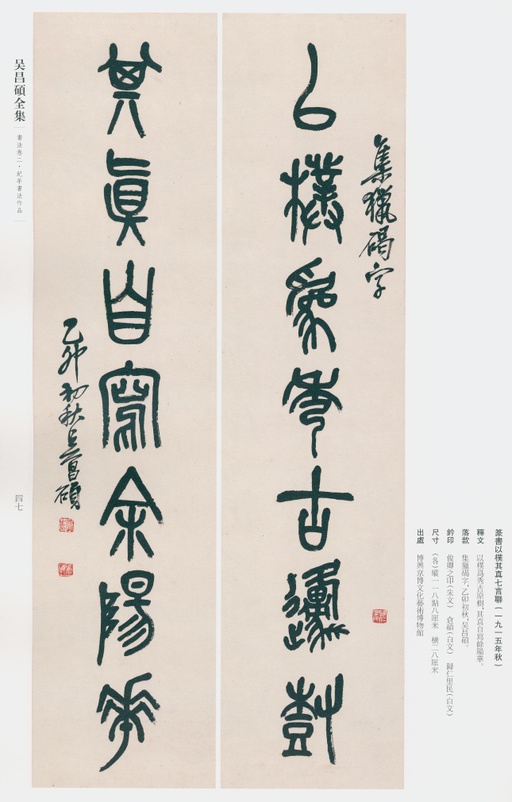 篆書以樸其真七言聯(一九一五年秋)
釋文 以樸爲秀古原樹,其真自寫餘陽華。
落款 集獵碣字。乙卯初秋,吴昌碩。
鈐印 俊卿之印(朱文) 倉碩(白文) 歸仁里民(白文)
尺寸 (各)縱一一八點八厘米 橫二八厘米
出處 博興京博文化藝術博物館
集獵碣字
以樸爲秀古邍樹
其眞自寫余陽華
乙卯初秋吴昌碩
吴昌碩全集
書法卷二·紀年書法作品
四七